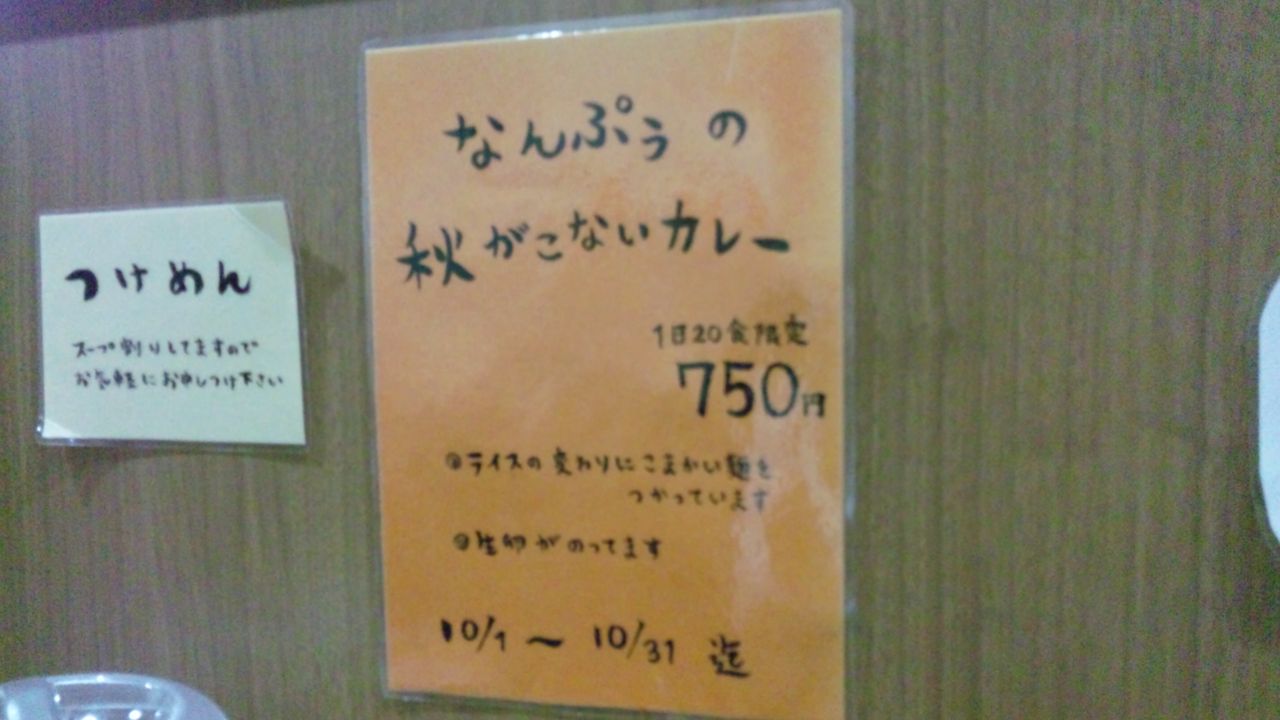 つけめん
スープ割りしてますので
お気軽にお申しつけ下さい
なんぷぅの
秋がこないカレー
1日20食限定
750円
◎ライスの変わりにこまかい麺を
つかっています
◎生卵がのってます
10/1 〜 10/31 迄